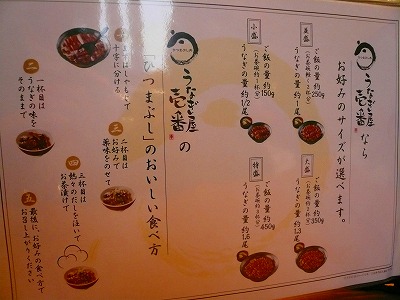 うなぎ屋
壱番 なら
お好みのサイズが選べます。
美盛
ご飯の量 約250g
うなぎの量 約1尾
小盛
ご飯の量 約150g
(お茶碗軽く1杯分)
うなぎの量 約1/2尾
大盛
ご飯の量 約350g
うなぎの量 約1.3尾
特盛
ご飯の量 約450g
うなぎの量 約1.6尾
うなぎ屋
壱番 の
「ひつまぶし」のおいしい食べ方
しゃもじで
十字に分ける
二
一杯目は
うなぎの味を
そのままで
三
二杯目は
お好みで
薬味をのせて
四
三杯目は
熱々のだしをほいで
お茶漬けで
五
最後に、お好みの食べ方で
お召し上がりください